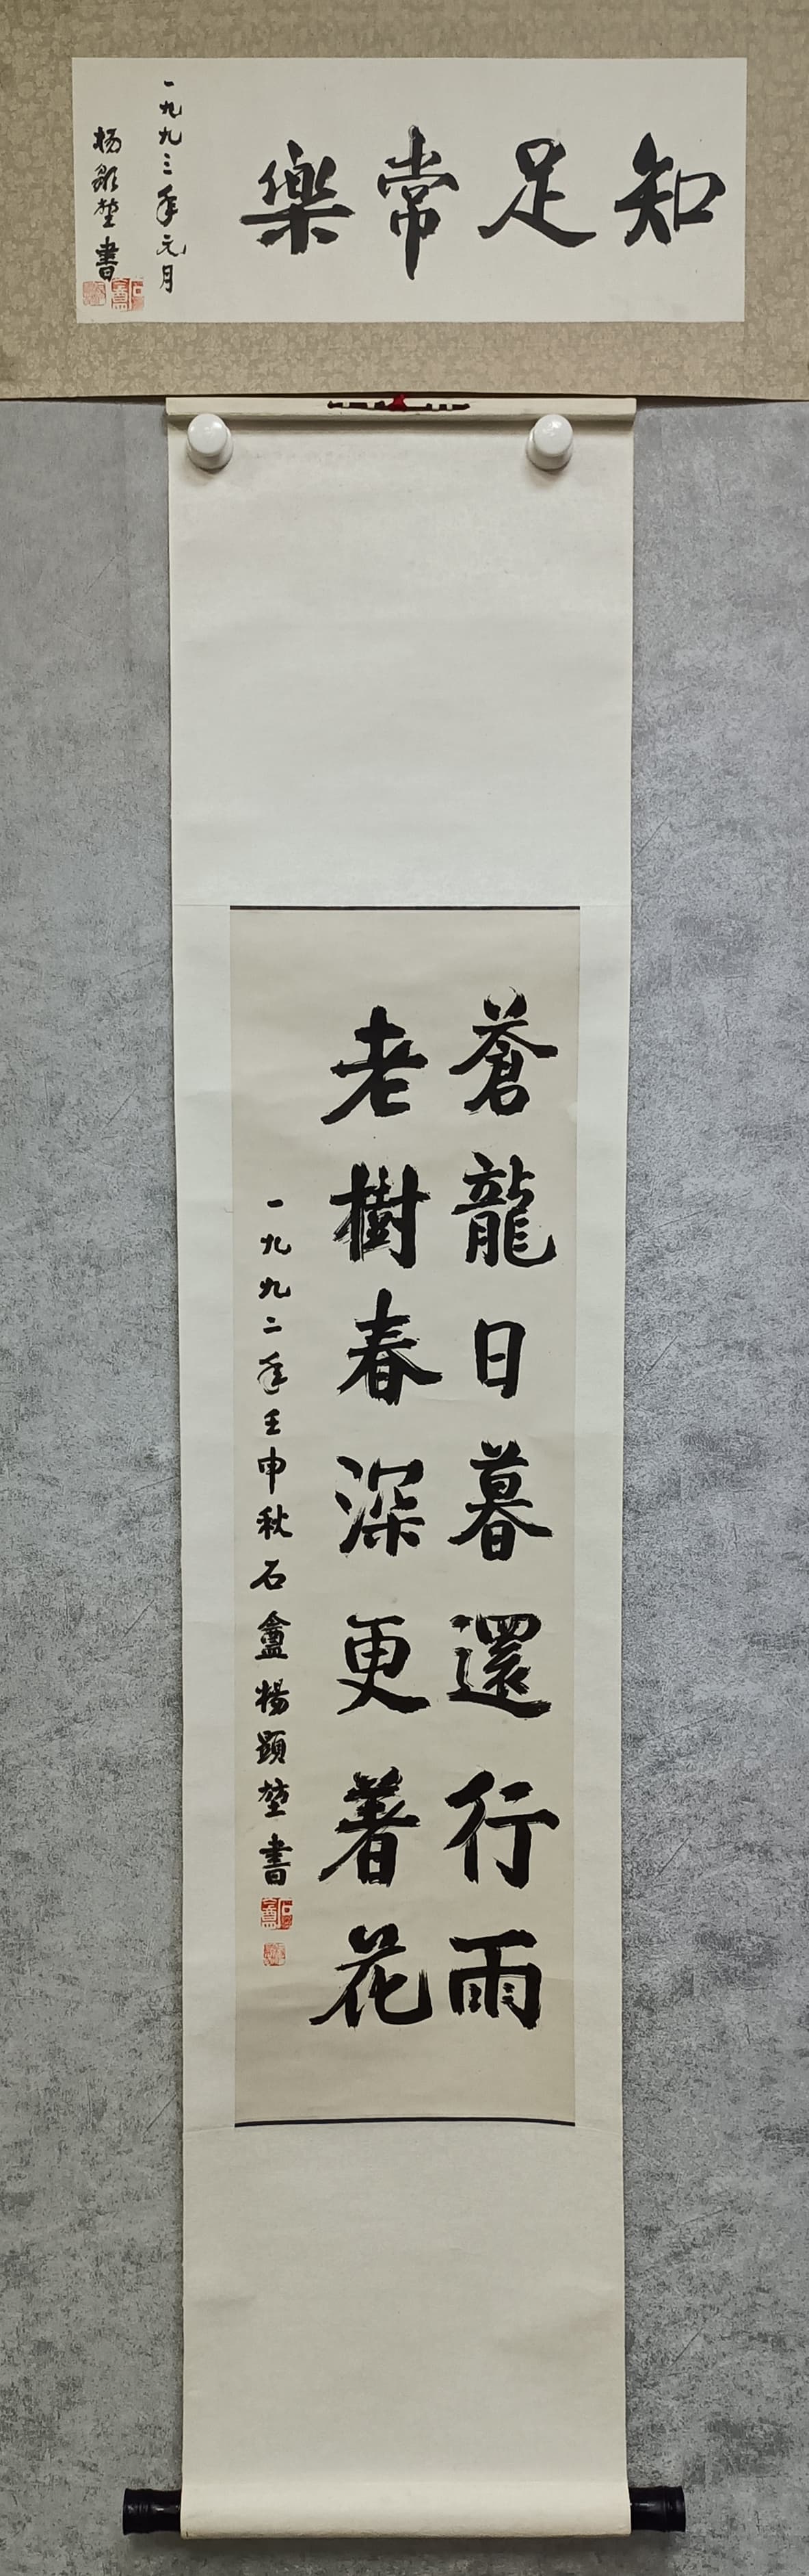 知足常樂
一九九三年元月
楊顯埜書
蒼龍日暮還行雨
老樹春深更著花
一九九二年壬申秋石盦楊顯埜書
石盦